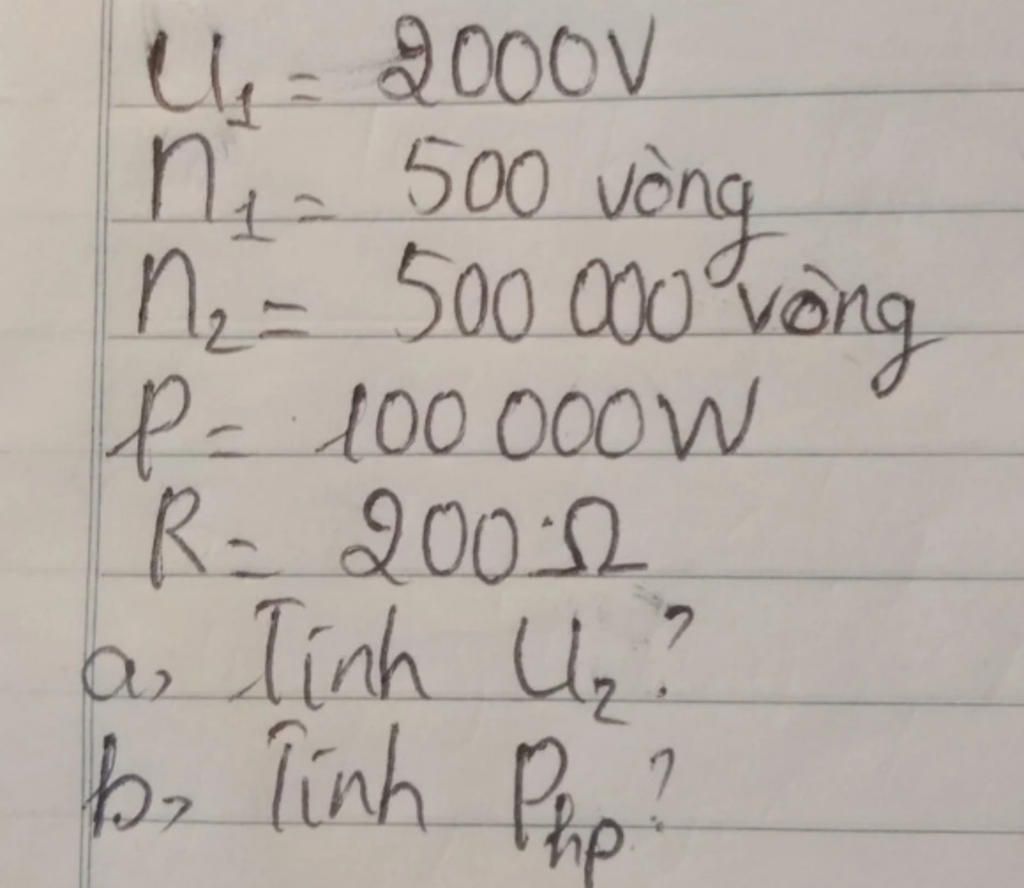 U₁ = 2000V
n₁ = 500 vòng
n₂ = 500 000 vòng
P = 100 000W
R = 200 Ω
a, Tính U₂?
b, Tính Php?